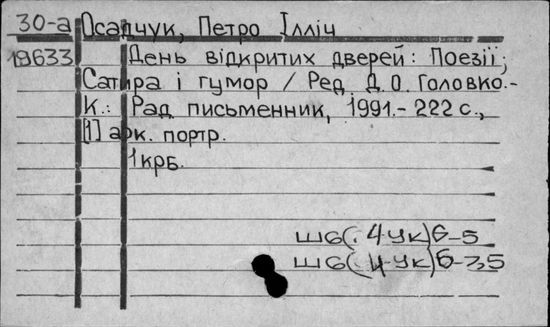 30-а Осадчук, Петро Ілліч
19633 День відкритих дверей: Поезії;
Сатира і гумор / Ред. Д.О. Головко.-
К.: Рад. письменник, 1991.- 222 с.,
[1] арк. портр.
1 крб.
Ш6(.4Ук)6-5
Ш6(.4-Ук)6-3,5